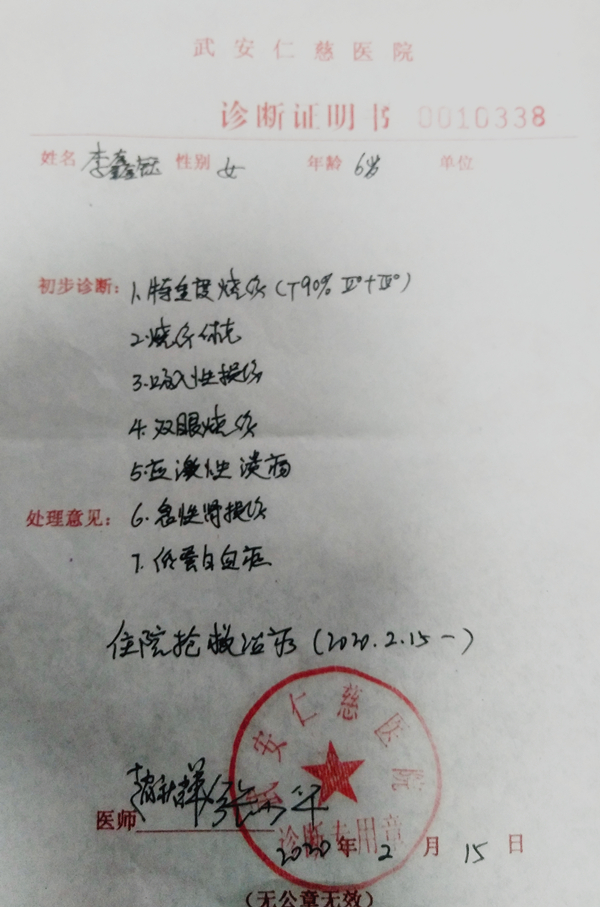 武安仁慈医院
诊断证明书 0010338
姓名 李鑫 性别 女 年龄 6岁 单位
初步诊断：1.特重度烧伤（T90% Ⅲ°+Ⅳ°）
2.烧伤休克
3.吸入性损伤
4.双眼烧伤
5.应激性溃疡
处理意见：6.急性肾损伤
7.低蛋白血症
住院抢救治疗（2020.2.15—）
武安仁慈医院
诊断专用章
医师
2020年2月15日
（无公章无效）